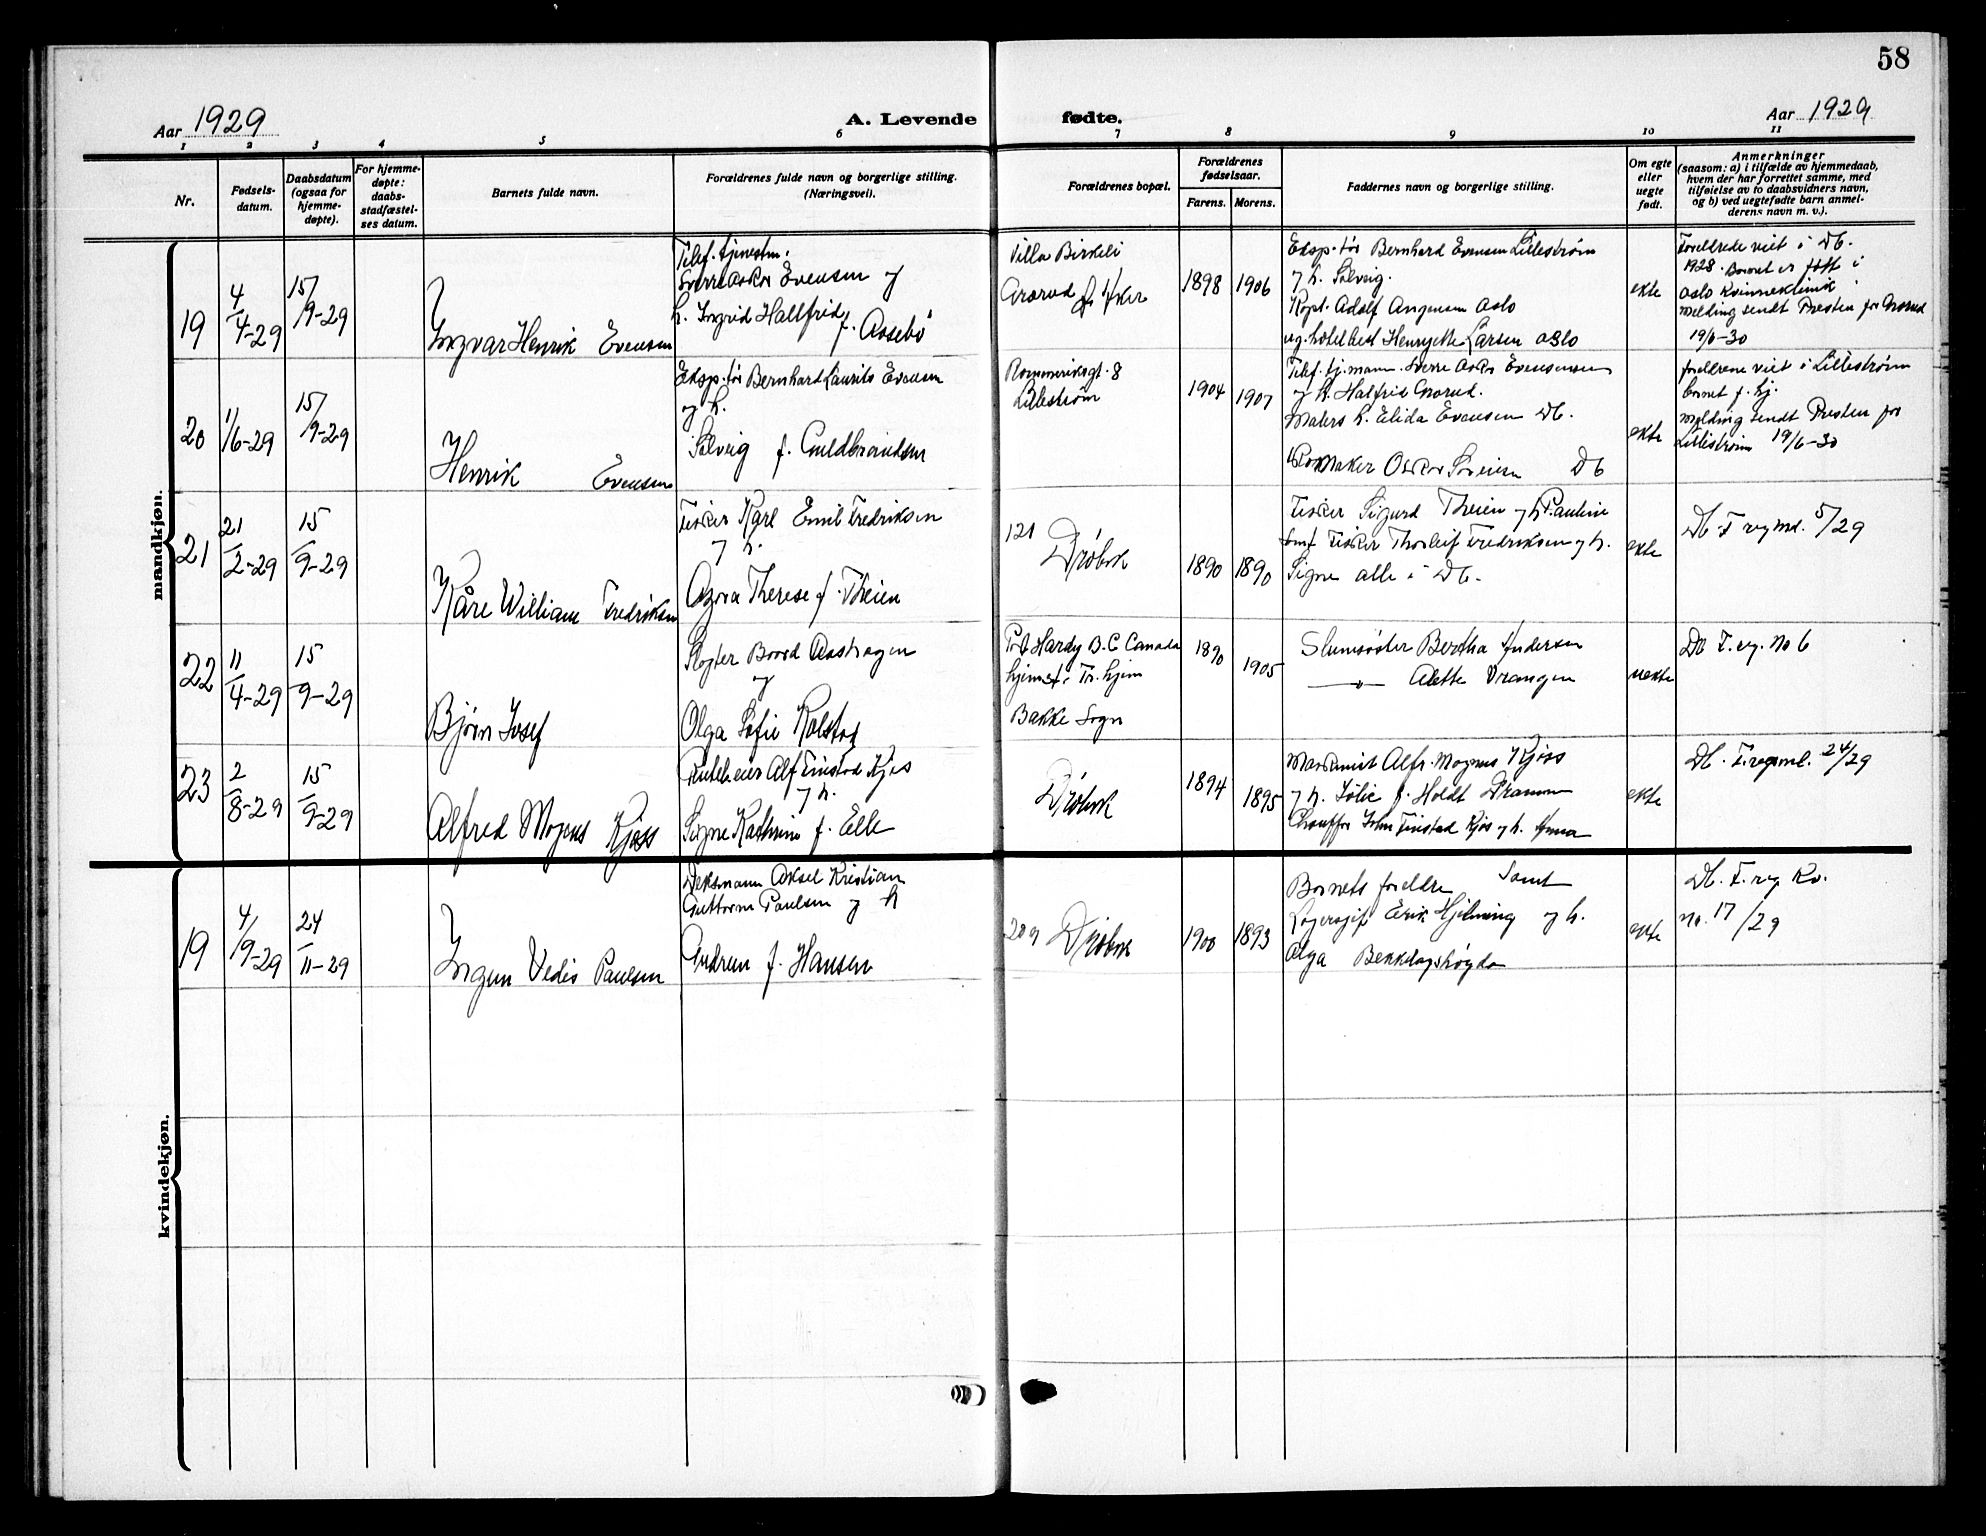 58
Aar 1929
A. Levende fødte.
Aar 1929
1 2 3 4 5 6 7 8 9 10 11
Nr.
Fødsels-
datum.
Daabsdatum
(ogsaa for
hjemme-
døpte).
For hjemme-
døpte:
daabs-
stadfæstel-
ses datum.
Barnets fulde navn.
Forældrenes fulde navn og borgerlige stilling.
(Næringsvei).
Forældrenes bopæl.
Forældrenes
fødselsaar.
Farens. Morens.
Faddernes navn og borgerlige stilling.
Om egte
eller
uegte
født.
Anmerkninger
(saasom: a) i tilfælde av hjemmedaab,
hvem der har forrettet samme, med
tilføielse av to daabsvidners navn,
og b) ved uegtefødte barn anmel-
derens navn m. v.).
mandkjøn.
19
4/4-29
15/9-29
Ingvar Henrik Evensen
Telef. tjenestm.
Sverre Oskar Evensen og
h. Ingrid Hallfrid
f. Aasebö
Villa Birkeli
Grorud p. Aker
1898 1906
Eksp.tör Bernhard Evensen Lilleström
og h. Solveig.
Kapt. Adolf Oslo
Henryette Larsen Oslo
ekte
Foreldrene viet i Db.
1928. Barnet er født i
Oslo Kvinneklinik
Melding sendt Presten for Grorud
19/6-30
20
1/6-29
15/9-29
Henrik Evensen
Eksp.tör Bernhard Laurits Evensen
og h.
Solveig f. Guldbrandsen
Romeriksgt. 8
Lilleström
1904 1907
Telef. tj.mann Sverre Oskar Evensen
og h. Halfrid Grorud.
Malers h. Elida Evensen Db.
Skomaker Oskar Db
ekte
foreldrene viet i Lilleström
barnet f. hj.
Melding sendt Presten for
Lilleström 19/6-30
21
21/2-29
15/9-29
Kåre William Fredriksen
Fisker Karl Emil Fredriksen
og h.
Agna Therese f. Theien
121
Drøbak
1890 1890
Fisker Sigurd Theien og h. Pauline
samt Fisker Thorleif Fredriksen og h.
Signe alle i Db.
ekte
Db F. reg md. 5/29
22
11/4-29
15/9-29
Björn Josef
og
Olga Sofie Kolstad
Port Hardy B.C Canada
hjemst. Fr. hjem
Bakke Sogn
1890 1905
Slumsöster Bertha Andersen
—"— Alette Vrangen
uekte
Db F. reg. No 6
23
2/8-29
15/9-29
Alfred Mogens Kjøs
Alf Finstad Kjøs
og h.
Signe Kathrine f. Elle
Drøbak
1894 1895
Maskinist Alfr. Mogens Kjøs
og h. Julie f. Holdt Drammen
Chauffør John Finstad Kjøs og h. Anna
ekte
Db. F. reg ml. 24/29
kvindekjøn.
19
4/9-29
24/11-29
Ingun Vedis Paulsen
Aksel Kristian
Guttorm Paulsen og h
Gudrun f. Hansen
209 Drøbak
1900 1893
Barnets foreldre samt
Erik Hjelmeng og h.
Olga Bekkelagshøgda
ekte
Db. F. reg Kv.
no. 17/29